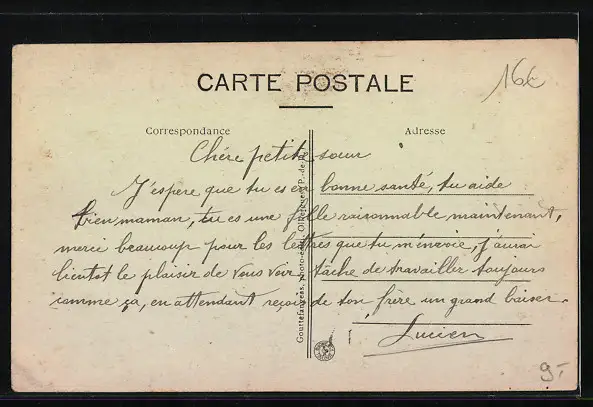 CARTE POSTALE
16€
Correspondance
Adresse
Chère petite sœur
J'espère que tu es en bonne santé, tu aide
bien maman, tu es une fille raisonnable maintenant,
merci beaucoup pour les lettres que tu m'envoie, j'aurai
bientot le plaisir de vous voir tâche de travailler toujours
comme ça, en attendant reçois de ton frère un grand baiser.
Lucien
Gouttefangeas, photo-édit.
9.-